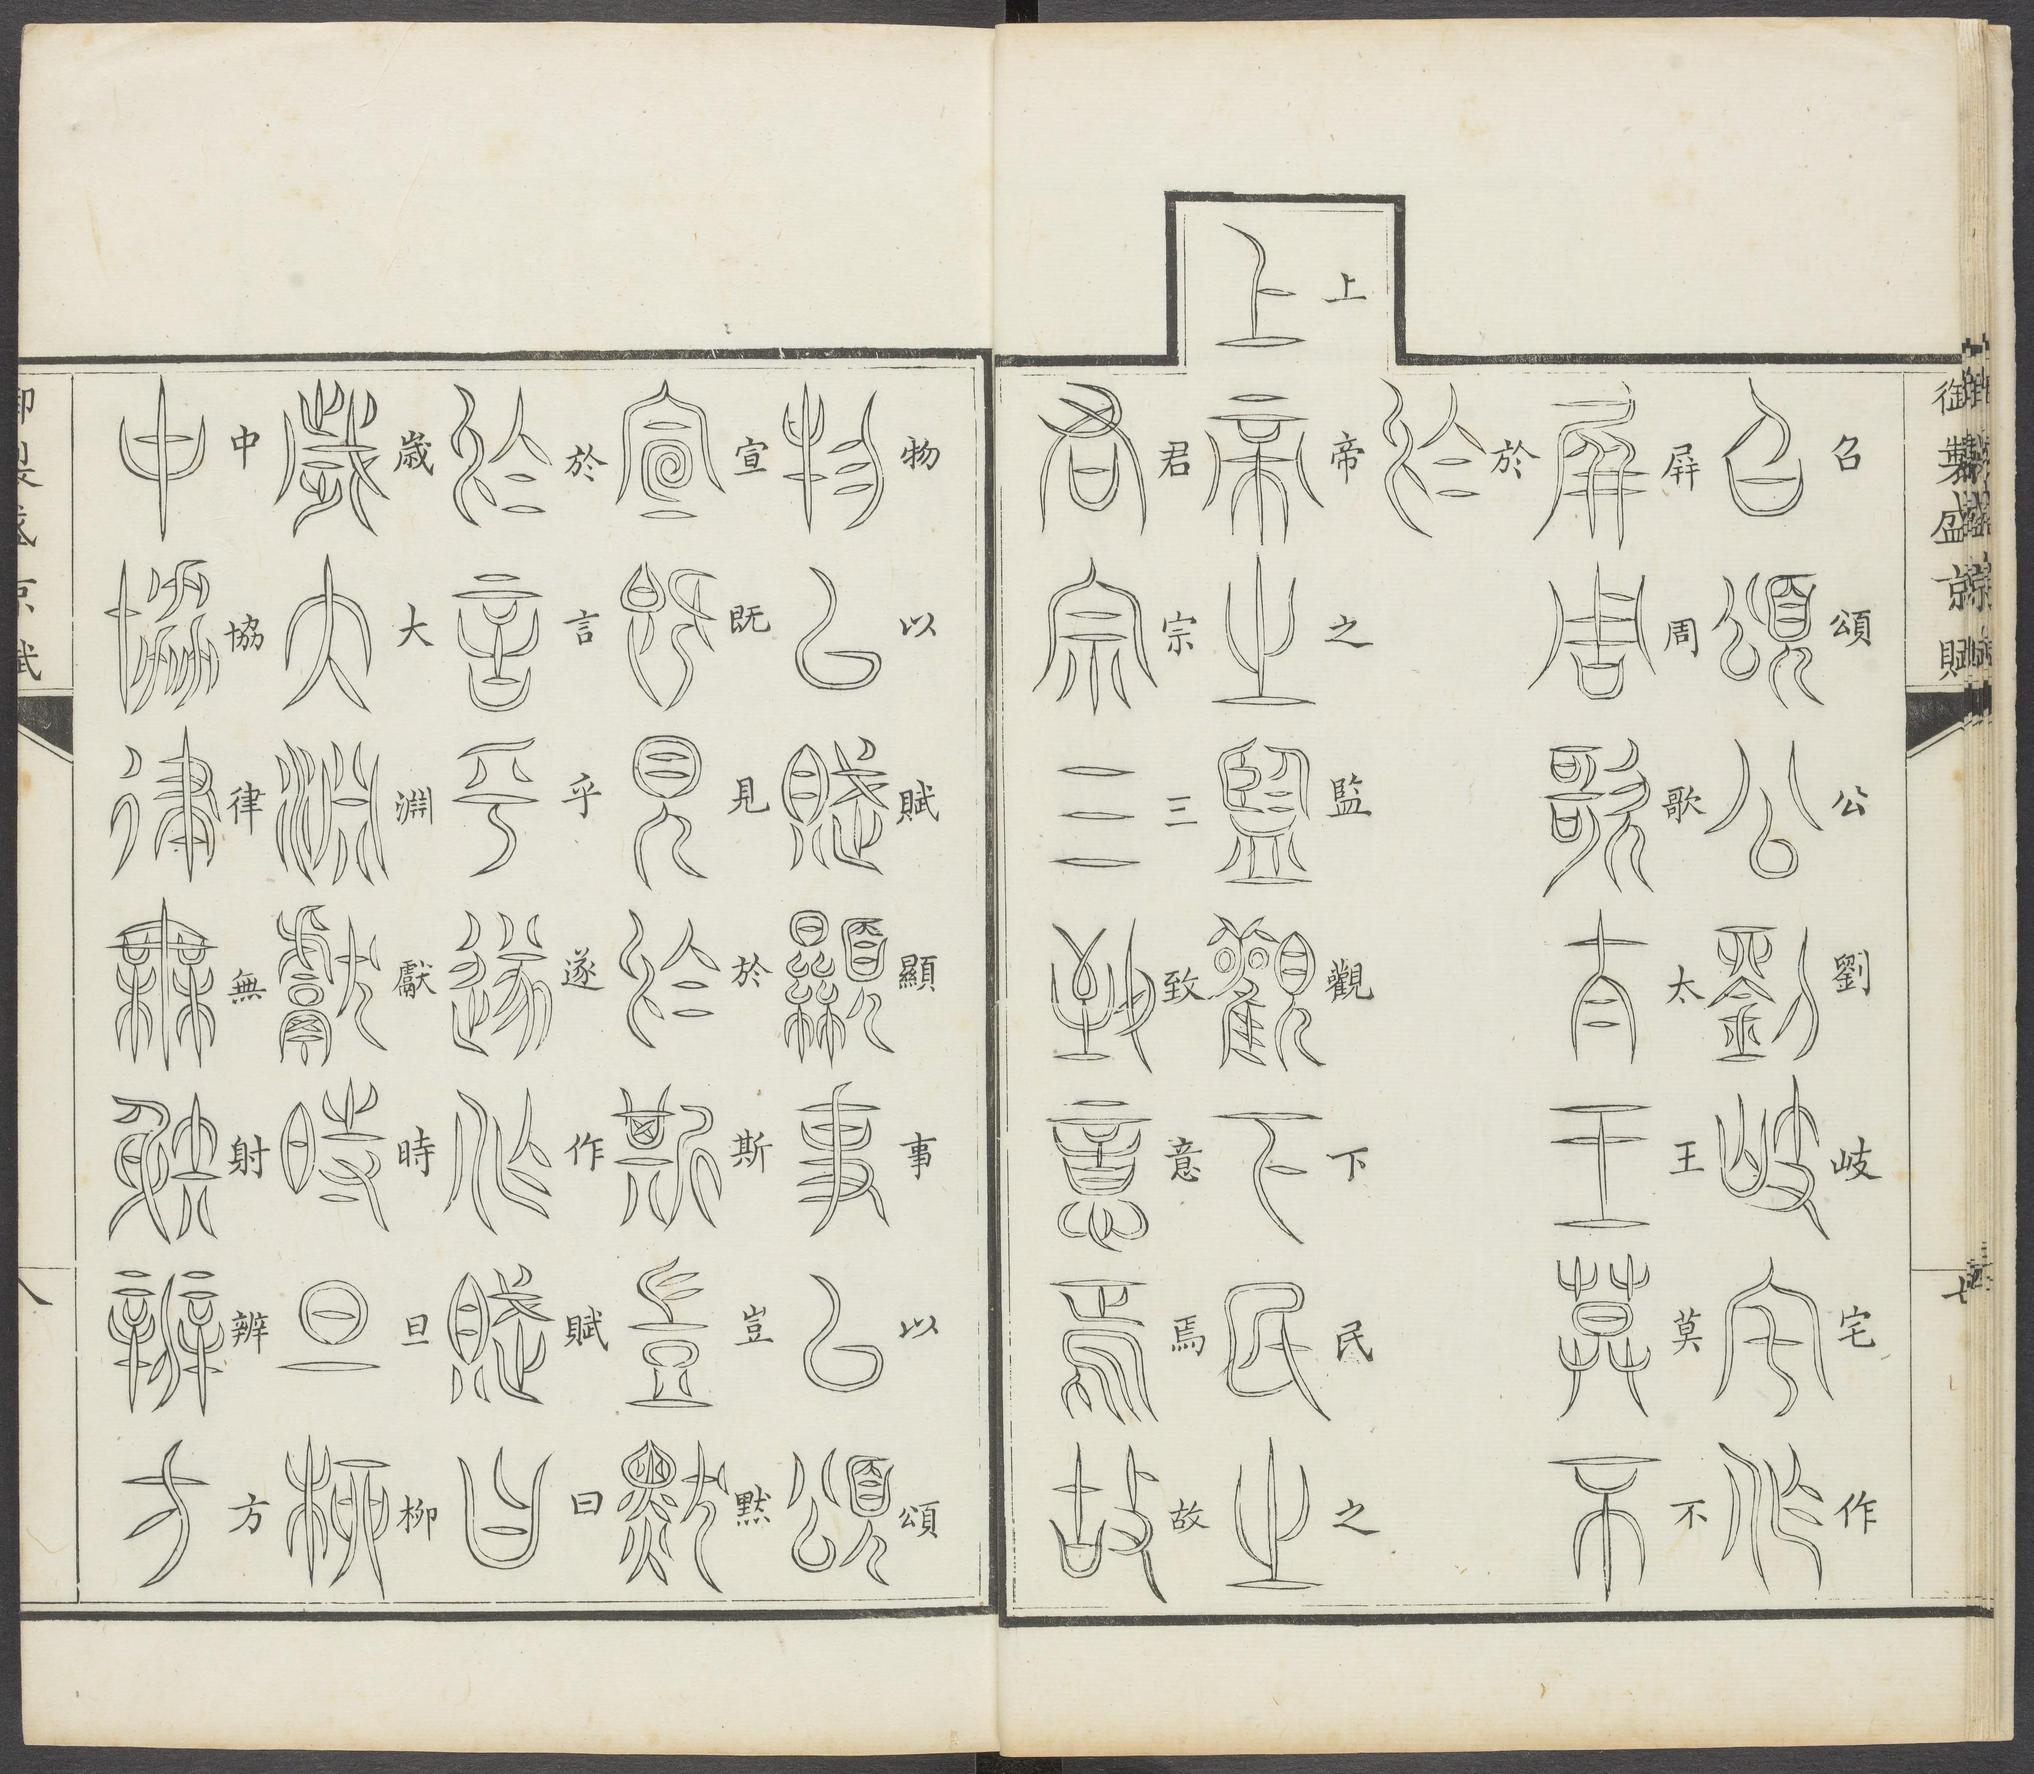 御製盛京賦
七
召頌公劉岐宅作
屛周歌太王莫不
於
上帝之監觀下民之
君宗三致意焉故
物以賦顯事以頌
宣旣見於斯豈默
於言乎遂作賦曰
歲大淵獻時旦柳
中協律無射辨方
御製盛京賦
八